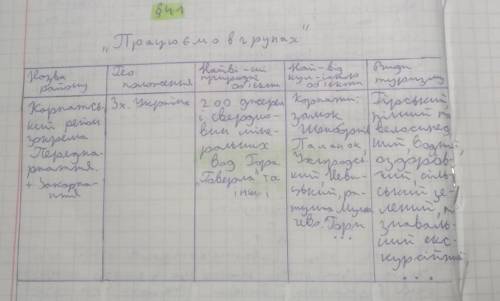 §41
„Працюємо в групах"
Назва
району
Гео
положення
Найві-ші
природні
об'єкти
Най-від
кул-істор
об'єкти
Види
туризму
Карпатсь
кий регіон
зокрема
Передка-
рпаття.
+ Закарпа-
ття
Зх. Україна
200 джерел
і свердло-
вин міне-
ральних
вод Гора
„Говерла" та
інші
Карпати:
замок
Шенборнів
Паланок,
Ужгородсь-
кий
ра-
туша Мука
чево. Гори
...
Гірський
піший та
велосипед
ний водний
оздоров-
чий, сіль-
ський зе-
лений, п
знаваль-
ний екс-
курсійний
...